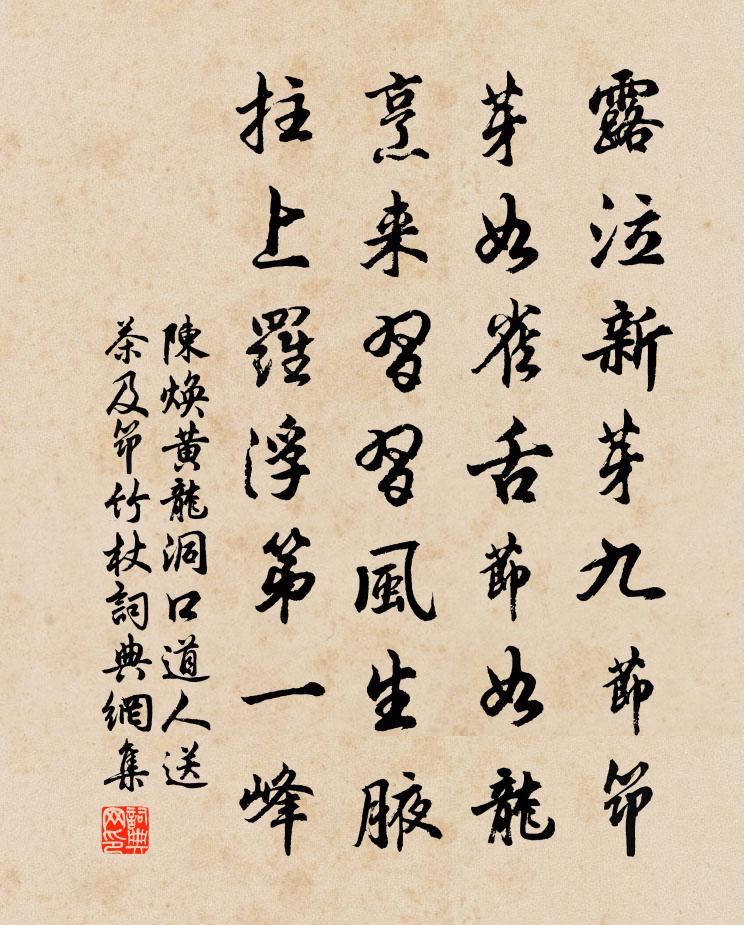 露泣新芽九節筇
芽如雀舌節如龍
烹来習習風生腋
拄上羅浮第一峰
陳煥黄龍洞口道人送
茶及筇竹杖詞典網集
詞典网印